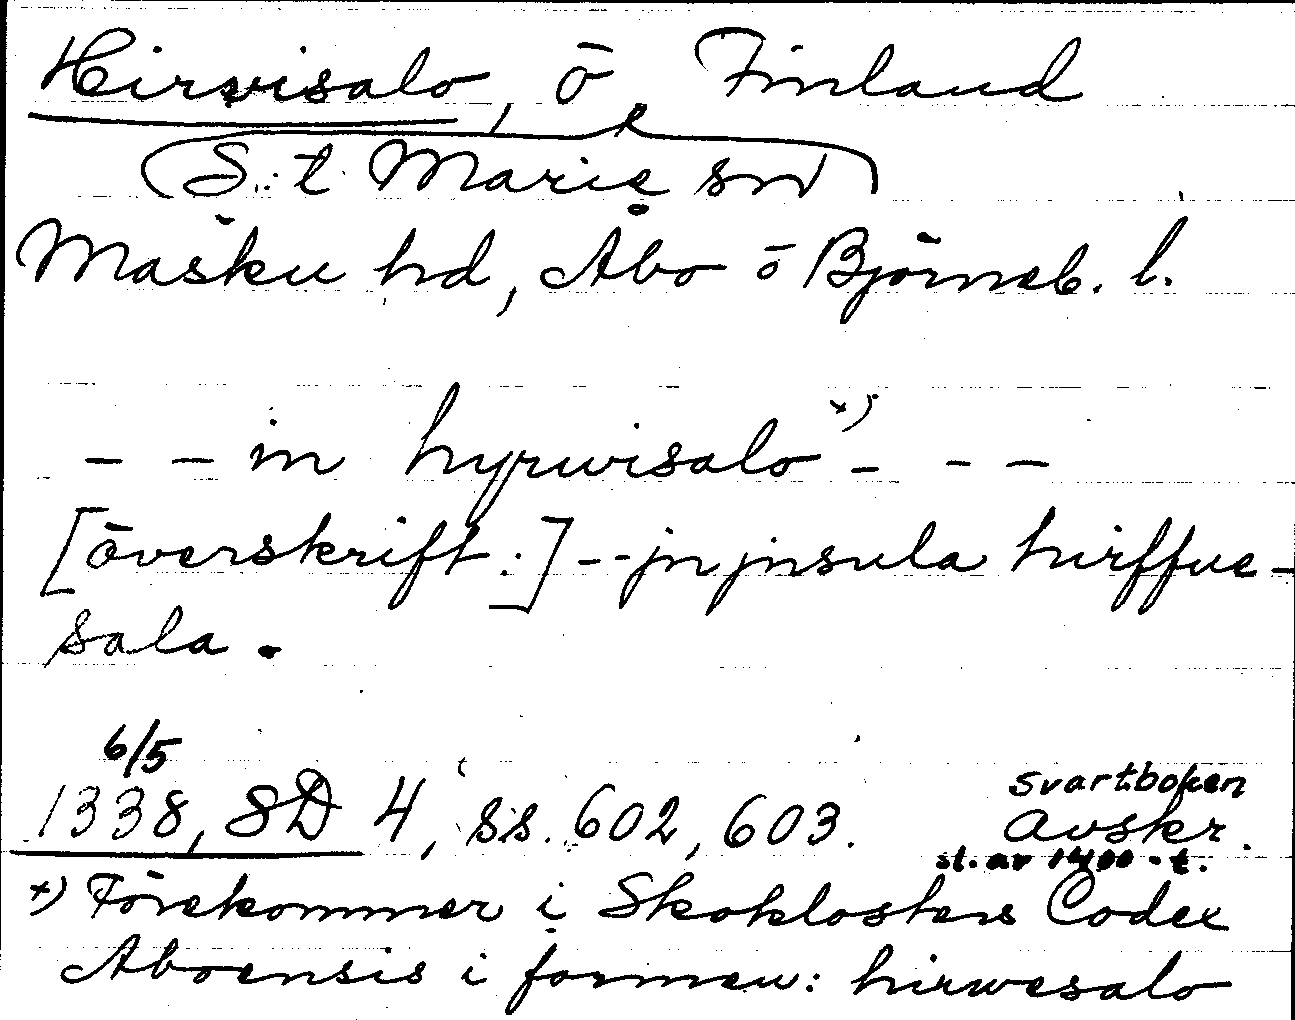 Hirvisalo, ö, Finland
(S:t Marie sn)
Masku hd, Åbo ö Björneb. l.
– – in hyrwisalo x) – – –
[överskrift:] – – jn jnsula hirffue-
sala.
6/5
1338, SD 4, ss. 602, 603.
Svartboken
Avskr.
sl. av 1400-t.
x) Förekommer i Skoklosters Codex
Aboensis i formen: hirwesalo